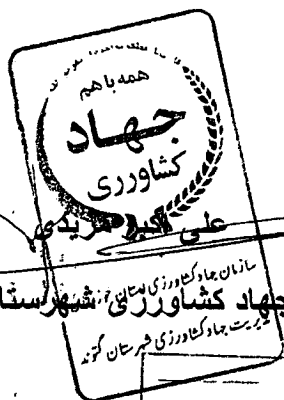 همه با هم
جهاد
کشاورزی
علی اکبر مریدی
سازمان جهاد کشاورزی استان خوز
جهاد کشاورزی شهرستا
مدیریت جهاد کشاورزی شهرستان گتوند